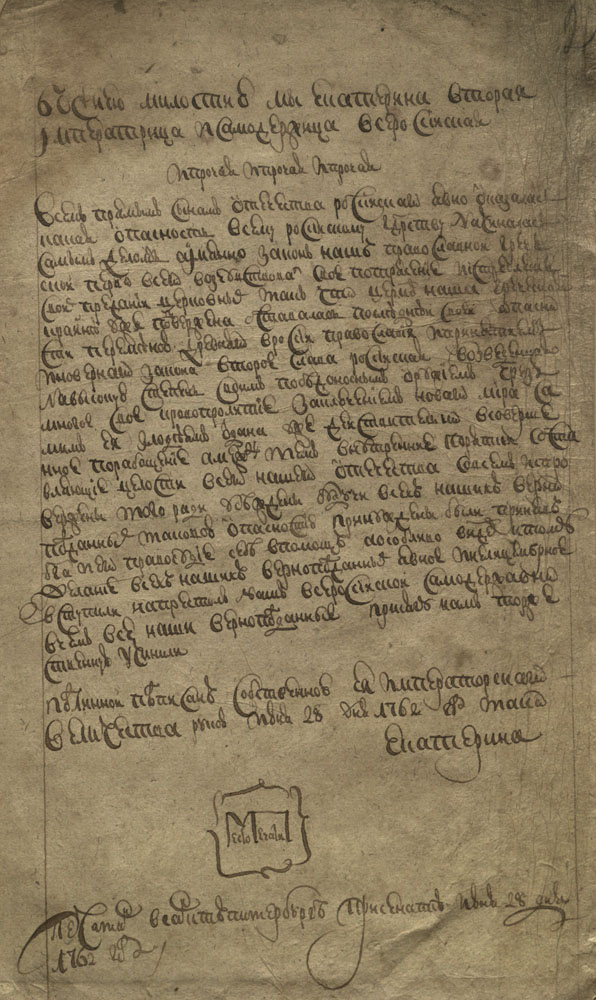 бЖиею милостию мы екатерина вторая
императрица и самодержица всеросиская
и прочая и прочая и прочая
Всемъ прямымъ сынамъ отечества росискаго явно оказалась
какая опасность всему росискому царству начиналась
самымъ деломъ а имянно законъ нашъ православной грече
ской перво всего возчувствовалъ свое потрясение и истребление
своихъ преданей церковныхъ такъ что церковь наша греческая
крайне уже подвержена оставалась последней своей опасно
сти переменою древняго вросіи православия и принятиемъ
иновернаго закона второе слава росиская возведенная
на высокую степень своимъ победоноснымъ оружиемъ чрезъ
многое свое кровопролитие заключениемъ новаго мира са
мимъ ея злодеямъ отдана уже действительно всоверше
нное порабощение а между темъ внутренние порятки соста
вляющие целость всего нашего отечества совсемъ испро
вержены того ради убеждены будучи всехъ нашихъ верно
подданныхъ таковою опасностию принуждены были принявъ
бга и его правосудие себе впомощь а особливо видя ктому
желание всехъ нашихъ верноподданныхъ явное и нелицемерное
вступили на престолъ нашъ всеросиской самодержавной
вчемъ все наши верноподданные присягу намъ торже
ственную учинили
Подлинной подписанъ собственною ея императорскаго
величества рукою июня 28 дня 1762 году тако
екатерина
Место Печати
Печатанъ в санктъпитербурге при сенате июня 28 дня
1762 году